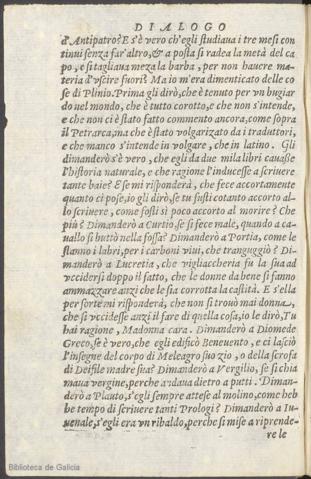 DIALOGO
d'Antipatro? E s'è vero ch'egli studiaua i tre mesi con
tinui senza far'altro, & a posta si radea la metà del ca
po, e si tagliaua meza la barba, per non hauere ma-
teria d'vscire fuori? Ma io m'era dimenticato delle co
se di Plinio. Prima gli dirò, che è tenuto per vn bugiar
do nel mondo, che è tutto corotto, e che non s'intende,
e che non ci è stato fatto commento ancora, come sopra
il Petrarca; ma che è stato volgarizato da i traduttori,
e che manco s'intende in volgare, che in latino. Gli
dimanderò s'è vero, che egli da due mila libri cauasse
l'historia naturale, e che ragione l'inducesse a scriuere
tante baie? E se mi risponderà, che fece accortamente
quanto ci pose, io gli dirò, se tu fusti cotanto accorto al-
lo scriuere, come fosti sì poco accorto al morire? Che
più? Dimanderò a Curtio, se si fece male, quando a ca-
uallo si buttò nella fossa? Dimanderò a Portia, come le
stanno i labri, per i carboni viui, che tranguggiò? Di-
manderò a Lucretia, che vigliaccheria fu la sua ad
vccidersi doppo il fatto, che le donne da bene si fanno
ammazzare anzi che le sia corrotta la castità. E s'ella
per sorte mi risponderà, che non si trouò mai donna,
che si vccidesse anzi il fare di quella cosa, io le dirò, Tu
hai ragione, Madonna cara. Dimanderò a Diomede
Greco, se è vero, che egli edificò Beneuento, e ci lasciò
l'insegne del corpo di Meleagro suo zio, o della scrofa
di Deifile madre sua? Dimanderò a Vergilio, se si chia
maua vergine, perche andaua dietro a putti. Diman-
derò a Plauto, s'egli sempre attese al molino, come heb
be tempo di scriuere tanti Prologi? Dimanderò a Iu-
uenale, s'egli era vn ribaldo, perche si mise a riprende-
re le
Biblioteca de Galicia